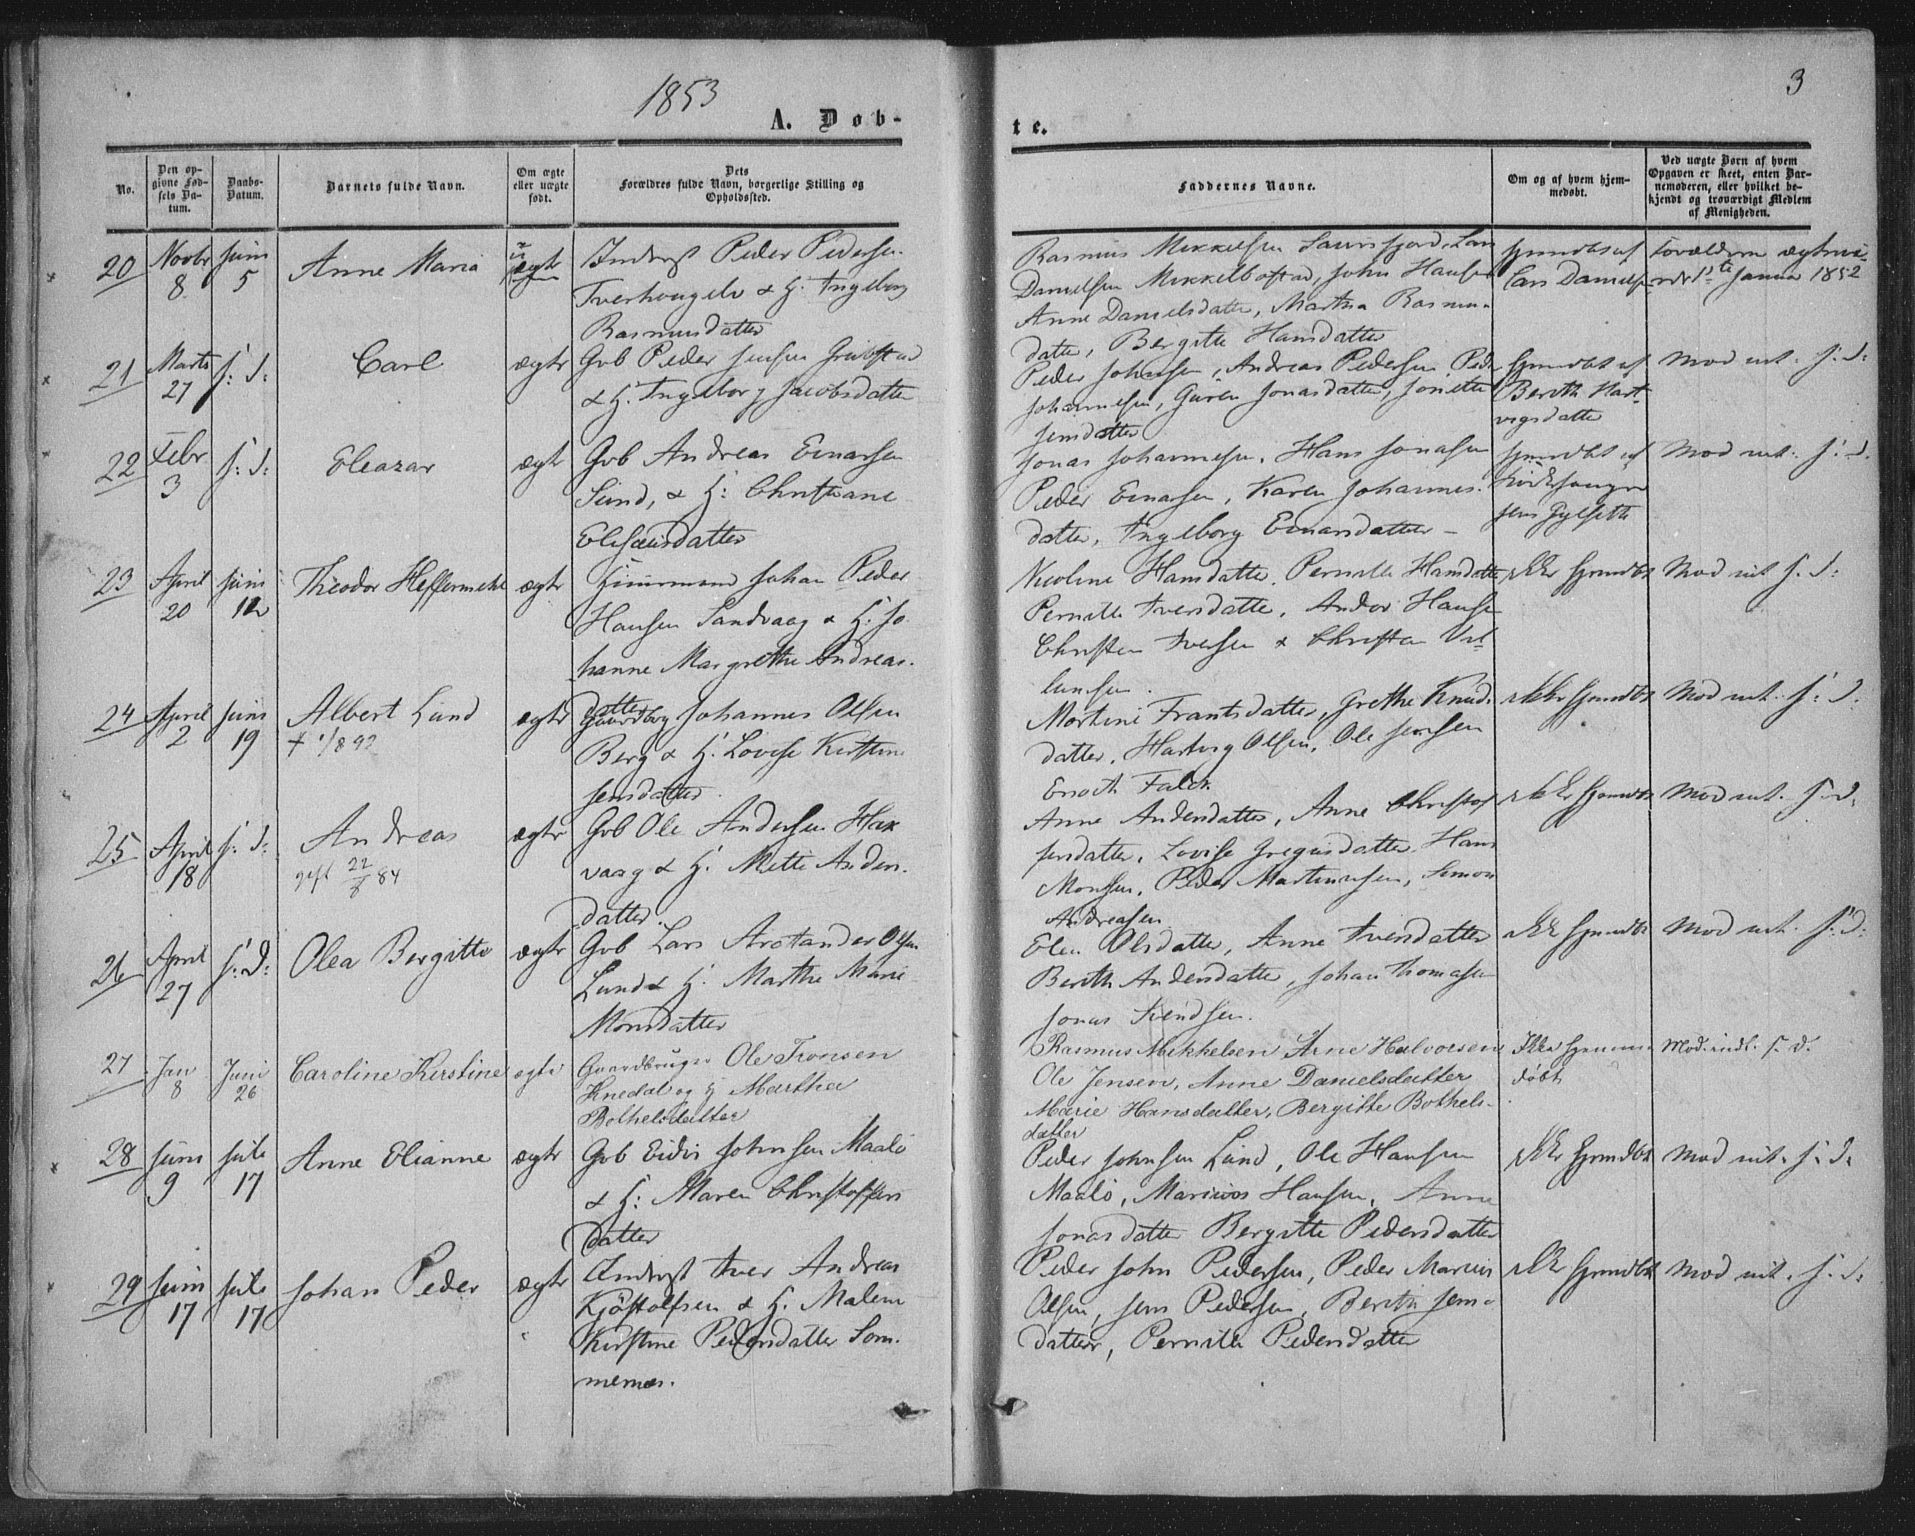 1853
3
A. Døb-
te.
No.
Den op-
givne Fød-
sels Da-
tum.
Daabs-
Datum.
Barnets fulde Navn.
Om ægte
eller uægte
født.
Dets
Forældres fulde Navn, borgerlige Stilling og
Opholdssted.
Faddernes Navne.
Om og af hvem hjem-
medøbt.
Ved uægte Børn af hvem
Opgaven er skeet, enten Bar-
nemoderen, eller hvilket be-
kjendt og troværdigt Medlem
af Menigheden.
20
Novbr
8
Juni
5
Anne Maria
ægte
Inderst Peder Pedersen
& H. Ingeborg
Rasmusdatter
Rasmus Mikkelsen Laursfjord, Lars
Danielsen Mikkelbostad, John Hansen
Anne Danielsdatter, Martha Rasmus-
datter, Bergitte Hansdatter
Hjemdøbt af
Lars Danielsen
Forældrene
Januar 1852
21
Marts
27
s: d:
Carl
ægte
Gvb Peder Jensen
& H. Ingeborg Jacobsdatter
Peder Johnsen, Andreas Pedersen, Peder
Johannesen, Jonasdatter, Jonette
Jensdatter
Hjemdøbt af
Berith Hart-
vigsdatter
Mod int. s: d:
22
Febr
3
s: d:
Eleazar
ægte
Gvb Andreas Einarsen
Sund, & H: Christiane
Eliseusdatter
Jonas Johannesen, Hans Jonasen
Peder Einarsen, Karen Johannes-
datter, Ingeborg Einarsdatter
Hjemdøbt af
Kirkesanger
Jens Gylseth
Mod int. s: d:
23
April
20
Juni
12
Theodor Heffermehl
ægte
Huusmand Johan Peder
Hansen Sandvaag & H. Jo-
hanne Margrethe Andreas-
datter
Nicoline Hansdatter, Pernille Hansdatter
Pernille Iversdatter, Andor Hansen
Christen Iversen & Christen
ikke hjemdøbt
Mod int s. d:
24
April
2
Juni
19
Albert Lund
† 1/8 92
ægte
Gaardbg Johannes Olsen
Berg & H. Lovise Kirstine
Jensdatter
Martine Frantsdatter, Grethe Knuds-
datter, Hartvig Olsen, Ole Jensen
Enoch Falch
ikke hjemdøbt
Mod int. s: d:
25
April
18
s: d:
Andreas
gift 22/8 84
ægte
Gvb Ole Andersen Hak-
vaag & H. Mette Anders-
datter.
Anne Andersdatter, Anne Christof-
fersdatter, Lovise Gregusdatter, Hans
Monsen, Peder Martinusen, Simon
Andreasen
ikke hjemdøbt
Mod int. s. d:
26
April
27
s: d:
Olea Bergitte
ægte
Gvb Lars Arctander Olsen
Lund & H. Marthe Marie
Monsdatter
Elen Olsdatter, Anne Iversdatter
Berith Andersdatter, Johan Thomasen
Jonas
ikke hjemdøbt
Mod int. s: d:
27
Jan
8
Juni
26
Caroline Kirstine
ægte
Gaardbruger Ole Tronsen
Knedal og H Martha
Bothelsdatter
Rasmus Mikkelsen Arne Halvorsen
Ole Jensen, Anne Danielsdatter
Marie Hansdatter, Bergitte Bothels-
datter
Ikke hjemme-
døbt
Mod. indt. s. d.
28
Juni
9
Juli
17
Anne Elianne
ægte
Gvb Johnsen Maalø
& H: Maren Christoffers-
datter
Peder Johnsen Lund, Ole Hansen
Maalø, Marius Hansen, Anne
Jonasdatter Bergitte Pedersdatter
ikke hjemdøbt
Mod int. s: d:
29
Juni
17
Juli
17
Johan Peder
ægte
Inderst Iver Andreas
& H. Malene
Kirstine Pedersdatter Som-
mernæs.
Peder John Pedersen, Peder Marius
Olsen, Jens Pedersen, Berith Jens-
datter, Pernille Pedersdatter
ikke hjemdøbt
Mod int. s: d: